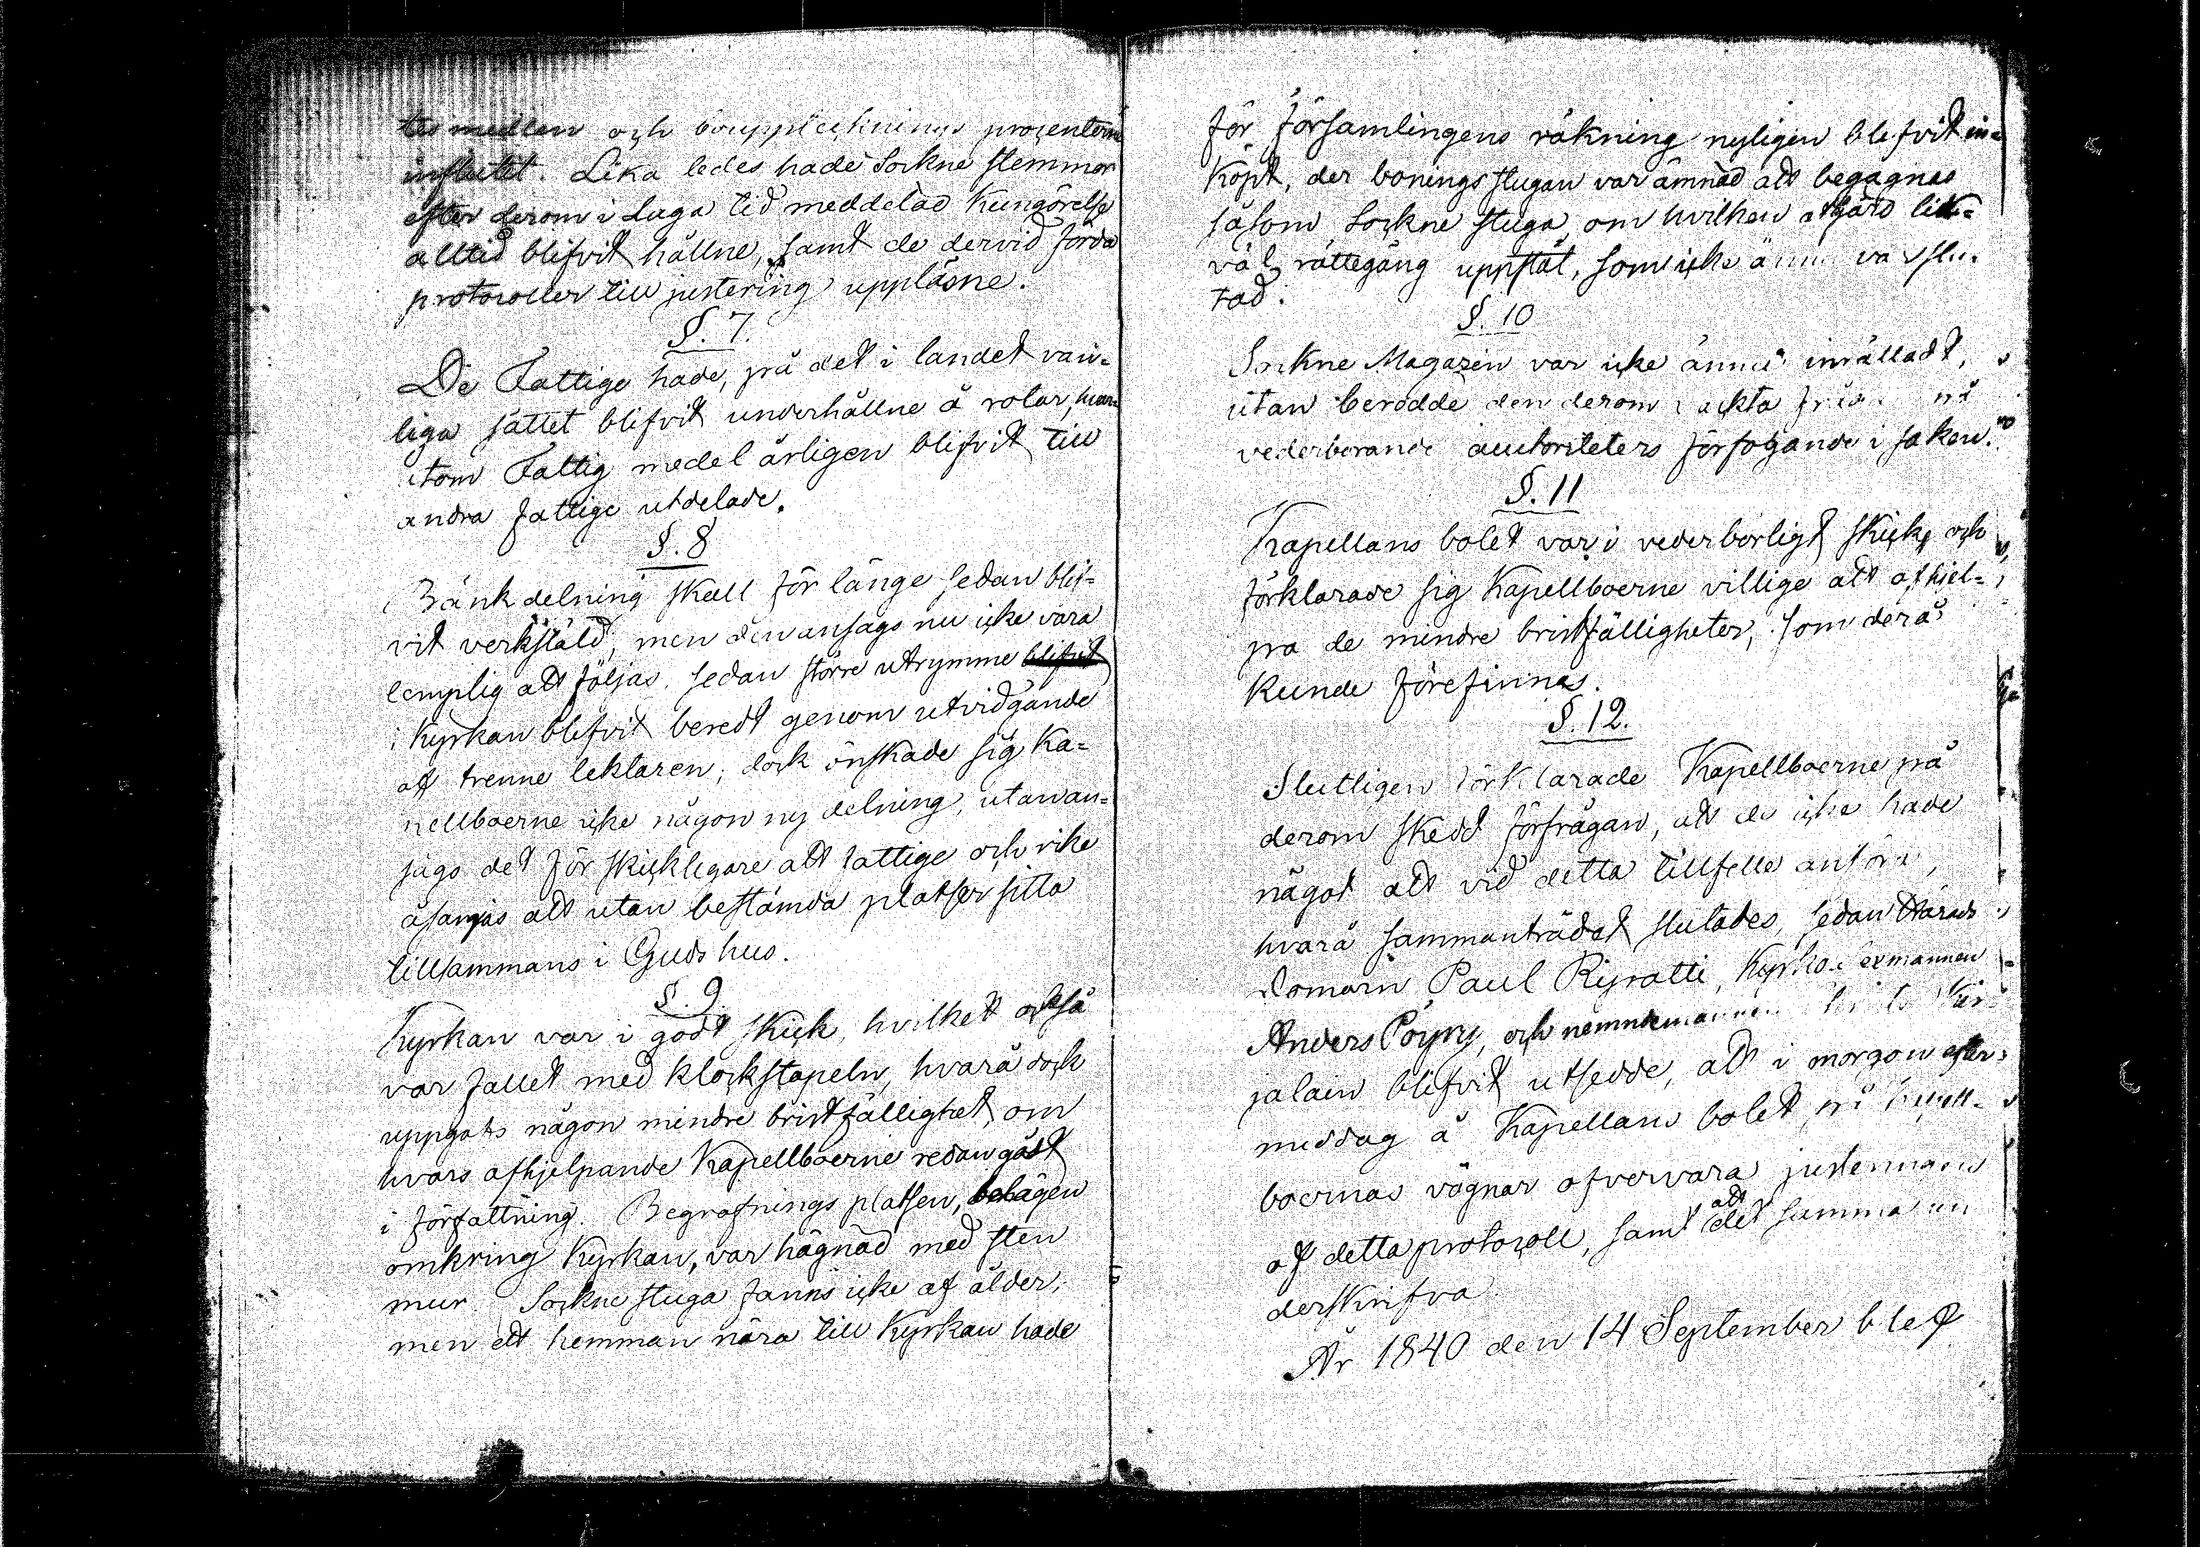 tes medlen och bouppteknings procenterne
influtit. Lika ledes hade Sockne stemmor
efter derom i Laga tid meddelad Kungörelse
alltid blifvit hållne, samt de dervid förda
protocoller till justering uppläsne.
§. 7.
De Fattige hade, på det i landet van-
liga sättet blifvit underhållne å rotar, hvar-
utom Fattig medel årligen blifvit till
andra fattige utdelade.
§. 8
Bänk delning skall för länge sedan blif-
vit verkstäld, men den ansags nu icke vara
lemplig att följas, sedan större utrymme blifvit
i Kyrkan blifvit beredt genom utvidgande
af trenne lektaren; dock önskade sig Ka-
pellboerne icke någon ny delning, utan an-
sågo det för skickligare att fattige och rike
åsamjas att utan bestämda platser sitta
tillsammans i Guds hus.
§. 9
Kyrkan var i godt skick, hvilket också
var fallet med klockstapeln, hvarå dock
uppgafs någon mindre bristfällighet, om
hvars afhjelpande Kapellboerne redan gått
i författning. Begrafnings platsen, belägen
omkring Kyrkan, var hägnad med sten
mur. Sockne stuga fanns icke af ålder,
men ett hemman nära till Kyrkan hade
för Församlingens räkning nyligen blifvit in-
köpt, der bonings stugan var ämnad att begagnas
såsom Sockne stuga, om hvilken åtgärd lik-
väl rättegång uppstât, som icke ännu va slu-
tad.
§. 10
Sockne Magazin var icke ännu inrättadt,
utan berodde den derom väckta frågan på
vederbörande autoriteters förfogande i saken.
§. 11
Kapellans bolet var i vederbörligt skick, och
förklarade sig Kapellboerne villige att afhjel-
pa de mindre bristfälligheter, som derå
kunde förefinnas.
§. 12.
Slutligen förklarade Kapellboerne på
derom skedd förfrågan, att de icke hade
något att vid detta tillfelle anföra,
hvarå sammanträdet slutades, sedan Härads
Domarn Paul Ryratti, Kyrko
Anders Pöyry, och nämndemannen
jalain blifvit utsedde, att i morgon efter-
middag å Kapellans bolet på Kapell-
boernas vägnar öfvervara justeringen
af detta protocoll, samt att det samma un
derskrifva
År 1840 den 14 September blef